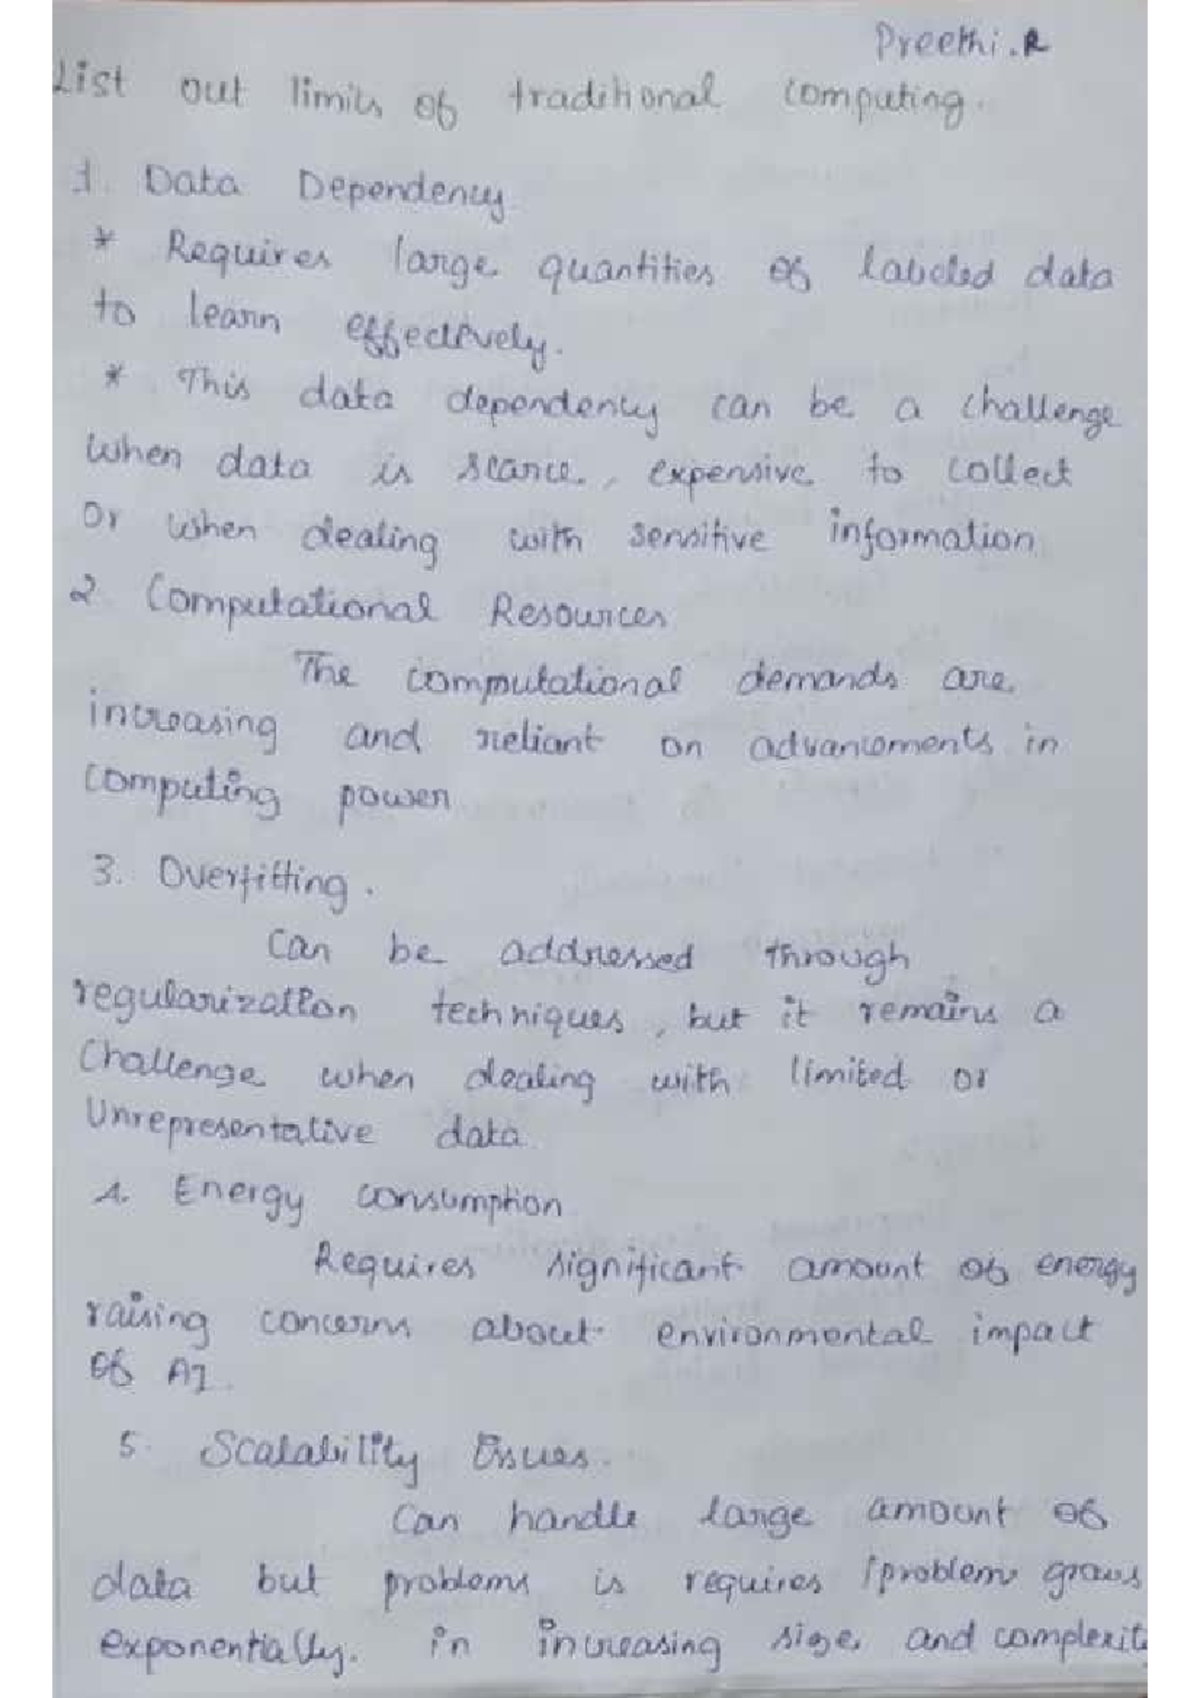 Preethi.R
List out limits of traditional computing.
1. Data Dependency
* Requires large quantities of labeled data
to learn effectively.
* This data dependency can be a challenge
when data is scarce, expensive to collect
Or when dealing with sensitive information
2. Computational Resources
The computational demands are
increasing and reliant on advancements in
computing power
3. Overfitting.
Can be addressed through
regularization techniques, but it remains a
Challenge when dealing with limited or
Unrepresentative data
4. Energy consumption
Requires significant amount of energy
raising concerns about environmental impact
of AI.
5. Scalability Issues.
Can handle large amount of
data but problems is requires problem grows
exponentially. in increasing size and complexit